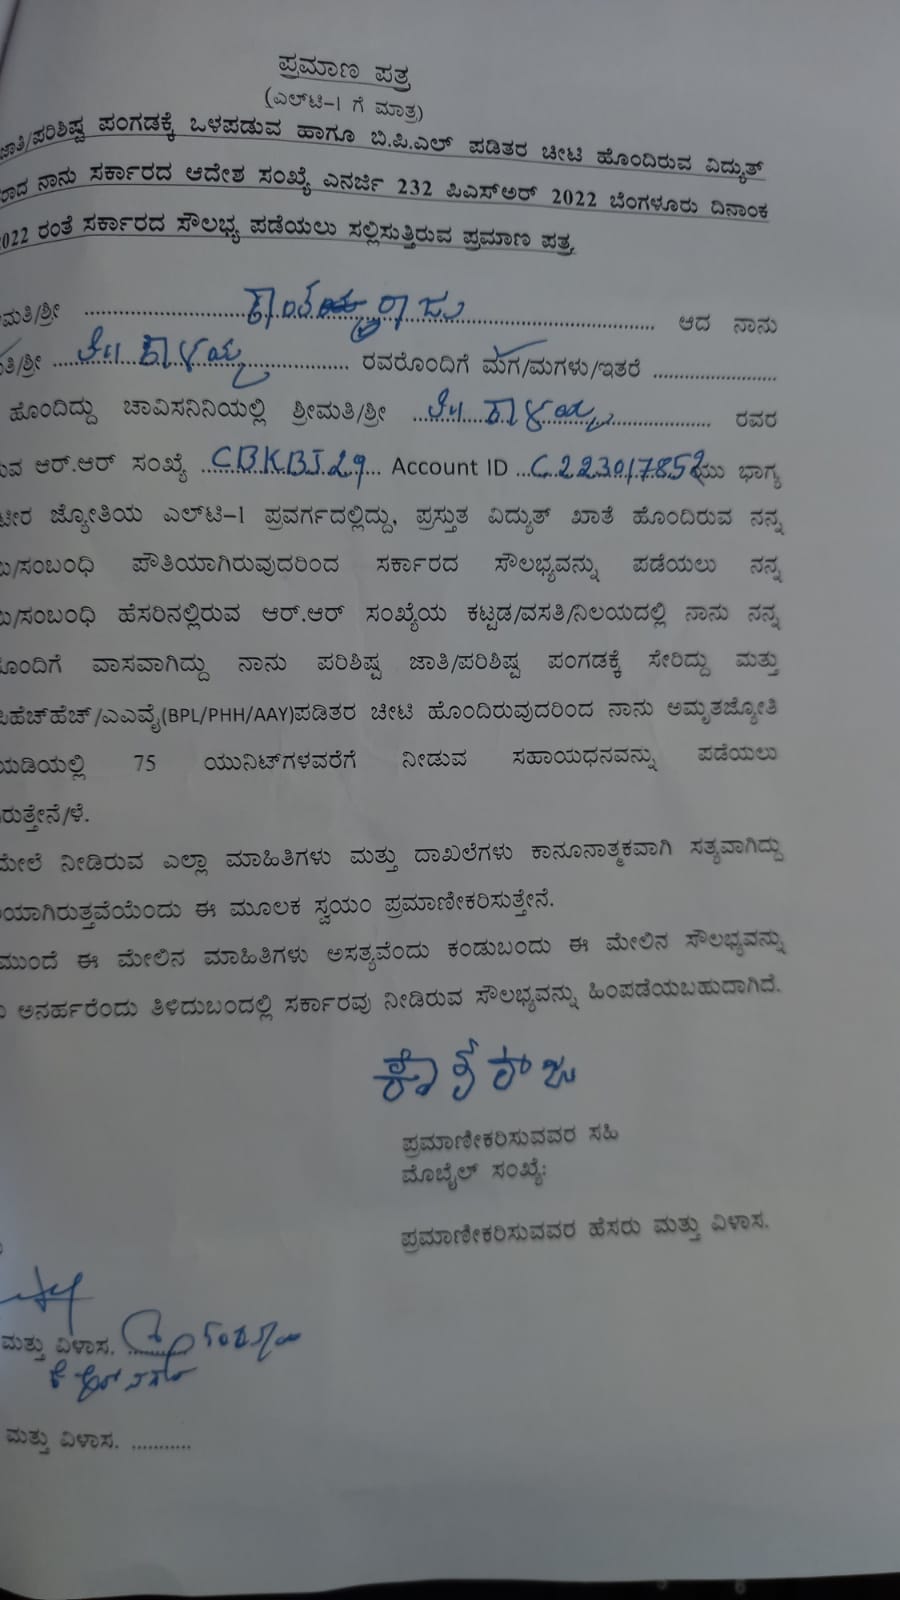 ಪ್ರಮಾಣ ಪತ್ರ
(ಎಲ್‌ಟಿ-1 ಗೆ ಮಾತ್ರ)
ಜಾತಿ/ಪರಿಶಿಷ್ಟ ಪಂಗಡಕ್ಕೆ ಒಳಪಡುವ ಹಾಗೂ ಬಿ.ಪಿ.ಎಲ್ ಪಡಿತರ ಚೀಟಿ ಹೊಂದಿರುವ ವಿದ್ಯುತ್
ರಾದ ನಾನು ಸರ್ಕಾರದ ಆದೇಶ ಸಂಖ್ಯೆ ಎನರ್ಜಿ 232 ಪಿಎಸ್‌ಆರ್ 2022 ಬೆಂಗಳೂರು ದಿನಾಂಕ
2022 ರಂತೆ ಸರ್ಕಾರದ ಸೌಲಭ್ಯ ಪಡೆಯಲು ಸಲ್ಲಿಸುತ್ತಿರುವ ಪ್ರಮಾಣ ಪತ್ರ
ಮತಿ/ಶ್ರೀ ಆದ ನಾನು
ತಿ/ಶ್ರೀ ಕಾಳಯ್ಯ ರವರೊಂದಿಗೆ ಮಗ/ಮಗಳು/ಇತರೆ
ಹೊಂದಿದ್ದು ಚಾವಿಸನಿನಿಯಲ್ಲಿ ಶ್ರೀಮತಿ/ಶ್ರೀ ಕಾಳಯ್ಯ ರವರ
ುವ ಆರ್.ಆರ್ ಸಂಖ್ಯೆ CBKBJ29 Account ID C223017852 ಯು ಭಾಗ್ಯ
ಟೀರ ಜ್ಯೋತಿಯ ಎಲ್‌ಟಿ-1 ಪ್ರವರ್ಗದಲ್ಲಿದ್ದು, ಪ್ರಸ್ತುತ ವಿದ್ಯುತ್ ಖಾತೆ ಹೊಂದಿರುವ ನನ್ನ
/ಸಂಬಂಧಿ ಪೌತಿಯಾಗಿರುವುದರಿಂದ ಸರ್ಕಾರದ ಸೌಲಭ್ಯವನ್ನು ಪಡೆಯಲು ನನ್ನ
/ಸಂಬಂಧಿ ಹೆಸರಿನಲ್ಲಿರುವ ಆರ್.ಆರ್ ಸಂಖ್ಯೆಯ ಕಟ್ಟಡ/ವಸತಿ/ನಿಲಯದಲ್ಲಿ ನಾನು ನನ್ನ
ೊಂದಿಗೆ ವಾಸವಾಗಿದ್ದು ನಾನು ಪರಿಶಿಷ್ಟ ಜಾತಿ/ಪರಿಶಿಷ್ಟ ಪಂಗಡಕ್ಕೆ ಸೇರಿದ್ದು ಮತ್ತು
ಪಿಹೆಚ್‌ಹೆಚ್/ಎಎವೈ(BPL/PHH/AAY)ಪಡಿತರ ಚೀಟಿ ಹೊಂದಿರುವುದರಿಂದ ನಾನು ಅಮೃತಜ್ಯೋತಿ
ಯಡಿಯಲ್ಲಿ 75 ಯುನಿಟ್‌ಗಳವರೆಗೆ ನೀಡುವ ಸಹಾಯಧನವನ್ನು ಪಡೆಯಲು
ರುತ್ತೇನೆ/ಳೆ.
ಮೇಲೆ ನೀಡಿರುವ ಎಲ್ಲಾ ಮಾಹಿತಿಗಳು ಮತ್ತು ದಾಖಲೆಗಳು ಕಾನೂನಾತ್ಮಕವಾಗಿ ಸತ್ಯವಾಗಿದ್ದು
ಯಾಗಿರುತ್ತವೆಯೆಂದು ಈ ಮೂಲಕ ಸ್ವಯಂ ಪ್ರಮಾಣೀಕರಿಸುತ್ತೇನೆ.
ಮುಂದೆ ಈ ಮೇಲಿನ ಮಾಹಿತಿಗಳು ಅಸತ್ಯವೆಂದು ಕಂಡುಬಂದು ಈ ಮೇಲಿನ ಸೌಲಭ್ಯವನ್ನು
ಅನರ್ಹರೆಂದು ತಿಳಿದುಬಂದಲ್ಲಿ ಸರ್ಕಾರವು ನೀಡಿರುವ ಸೌಲಭ್ಯವನ್ನು ಹಿಂಪಡೆಯಬಹುದಾಗಿದೆ.
ಪ್ರಮಾಣೀಕರಿಸುವವರ ಸಹಿ
ಮೊಬೈಲ್ ಸಂಖ್ಯೆ:
ಪ್ರಮಾಣೀಕರಿಸುವವರ ಹೆಸರು ಮತ್ತು ವಿಳಾಸ.
ಮತ್ತು ವಿಳಾಸ.
ಮತ್ತು ವಿಳಾಸ. ...........